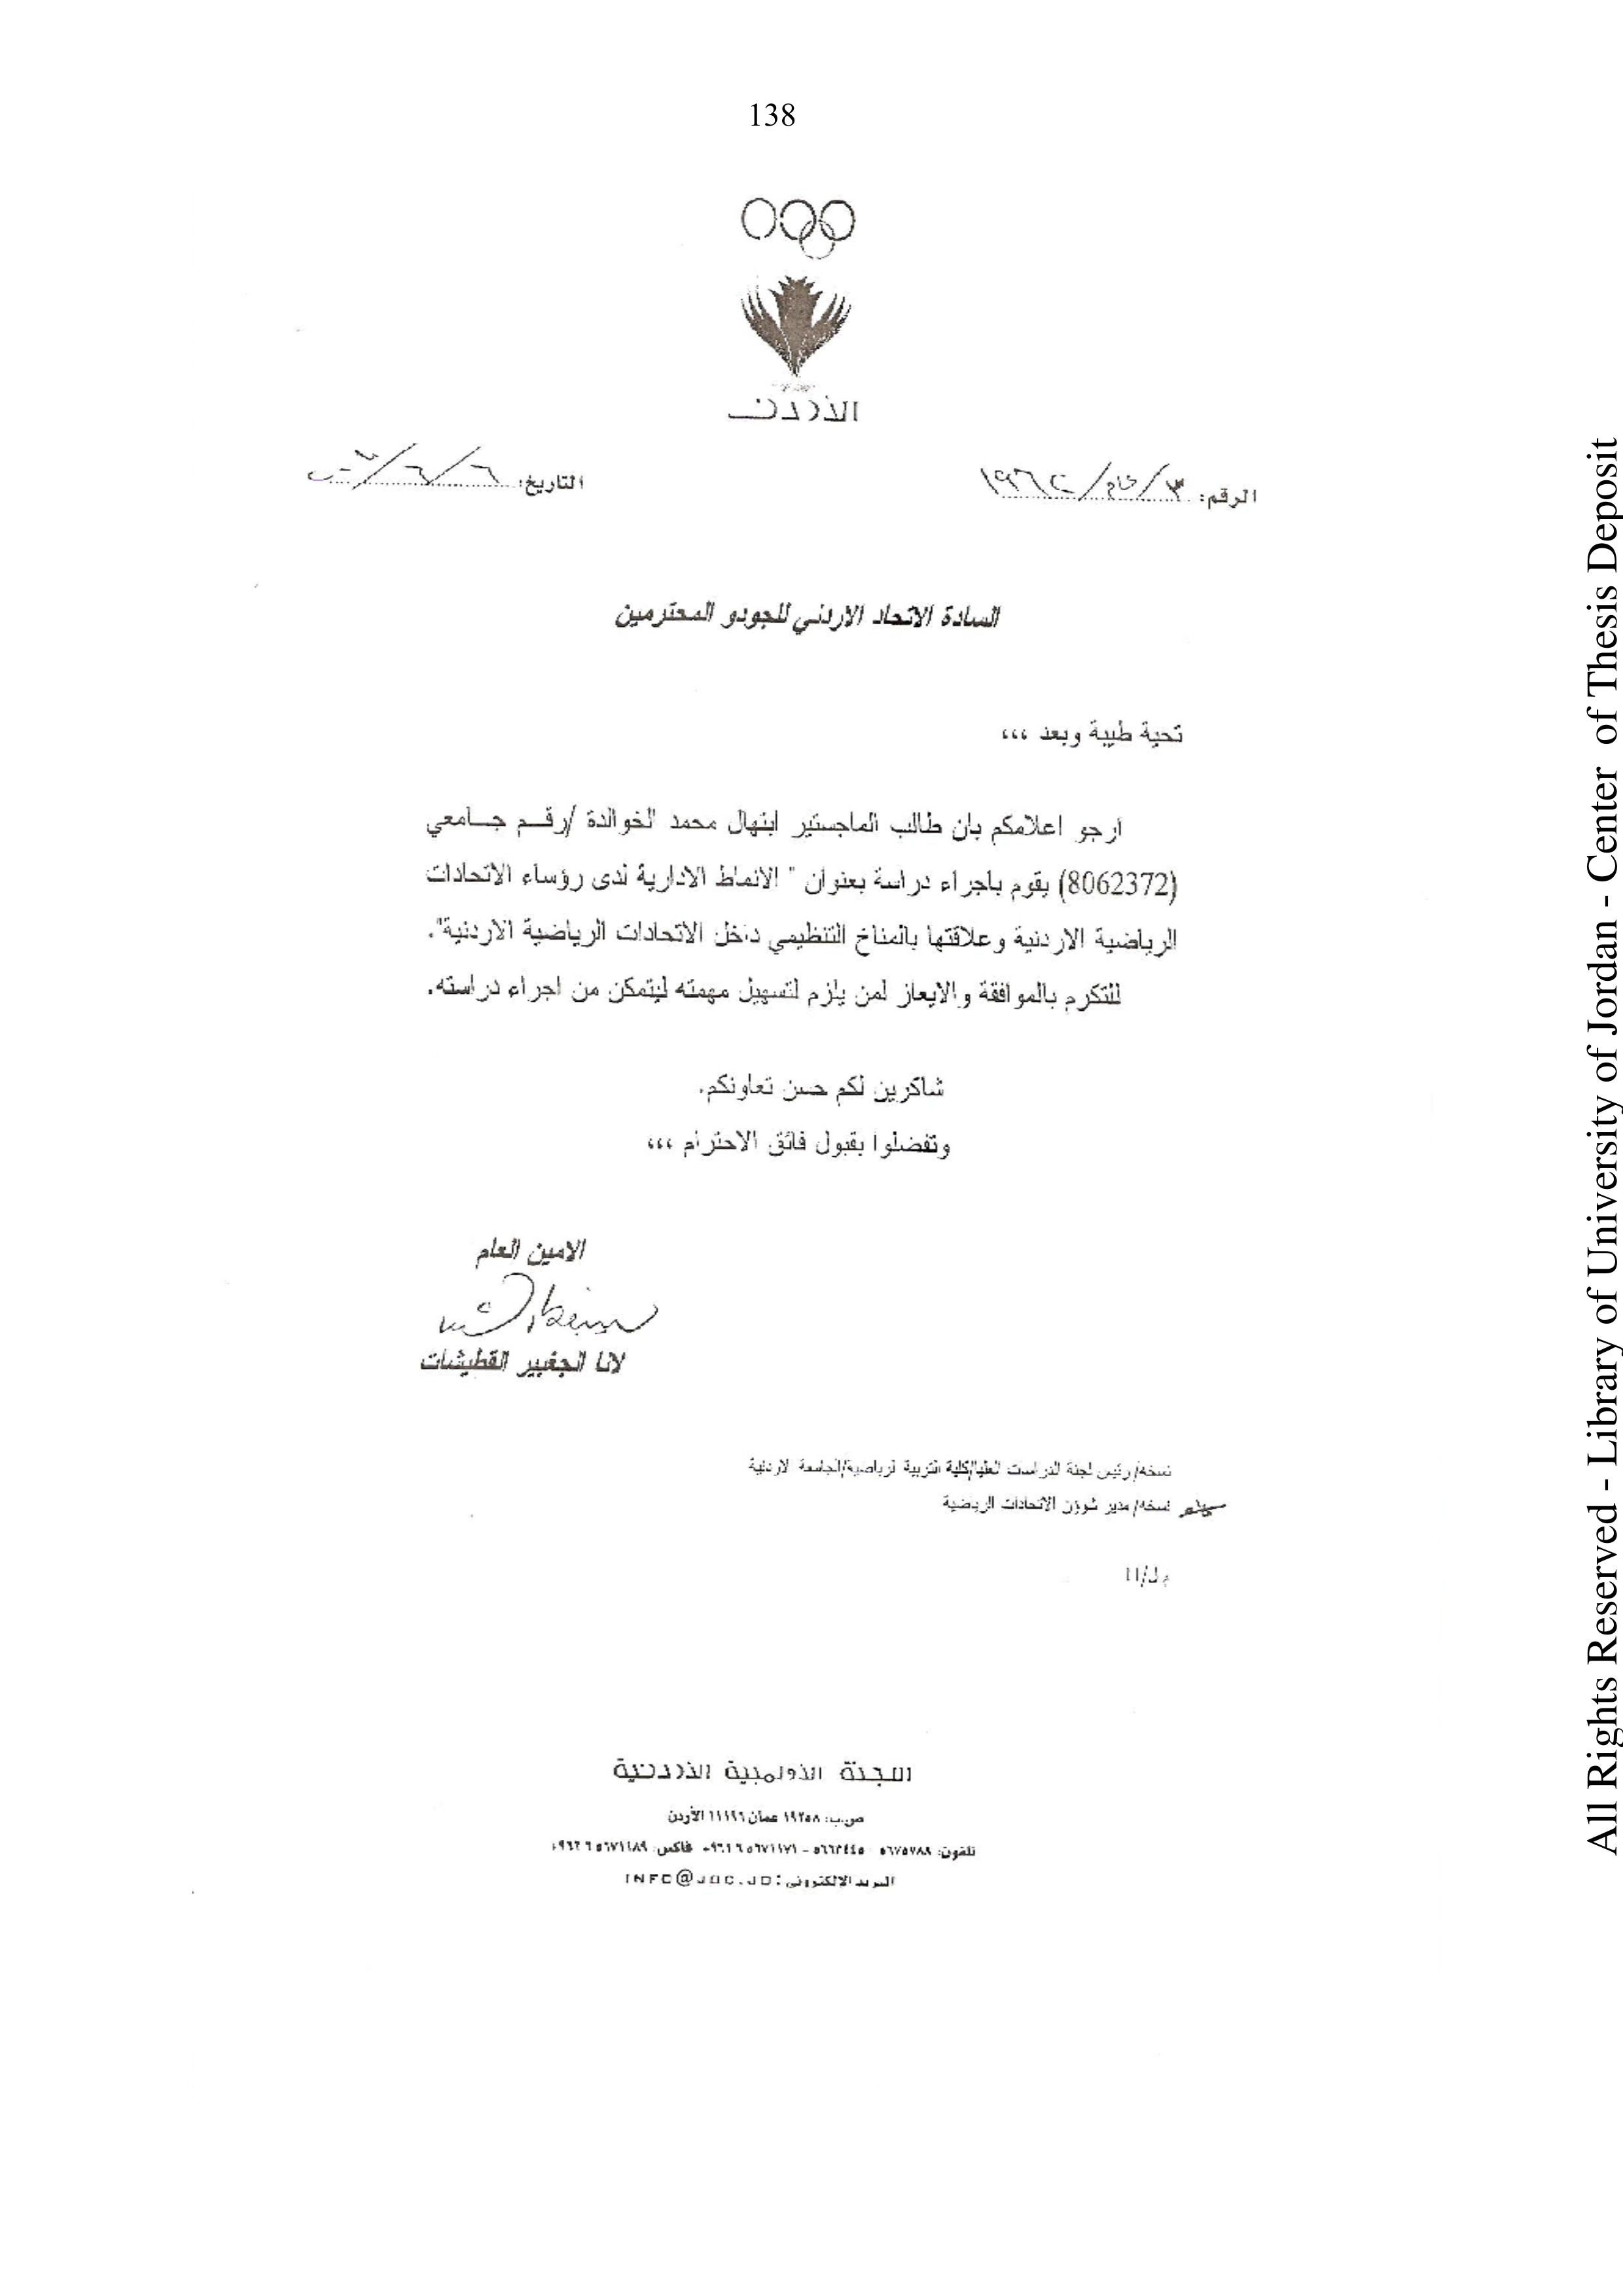 138
الأردن
الرقم: ٣/ /١٩٦٢
التاريخ: ٦/٦/
السادة الاتحاد الاردني للجودو المحترمين
تحية طيبة وبعد ،،،
ارجو اعلامكم بان طالب الماجستير ابتهال محمد الخوالدة /رقم جامعي
(8062372) يقوم باجراء دراسة بعنوان " الانماط الادارية لدى رؤساء الاتحادات
الرياضية الاردنية وعلاقتها بالمناخ التنظيمي داخل الاتحادات الرياضية الاردنية".
للتكرم بالموافقة والايعاز لمن يلزم لتسهيل مهمته ليتمكن من اجراء دراسته.
شاكرين لكم حسن تعاونكم.
وتفضلوا بقبول فائق الاحترام ،،،
الامين العام
لانا الجغبير القطيشات
نسخه/ رئيس لجنة الدراسات العليا/كلية التربية الرياضية/الجامعة الاردنية
نسخه/ مدير شؤون الاتحادات الرياضية
اللجنة الأولمبية الأردنية
ص.ب: ١٩٢٥٨ عمان ١١١٩٦ الأردن
تلفون: ٥٦٧٥٧٨٨ ٥٦٦٢٤٤٥ - ٥٦٧١١٧١ ٦ ٩٦٢+ فاكس: ٥٦٧١١٨٩ ٦ ٩٦٢+
البريد الالكتروني: INFO@JOC.JO
All Rights Reserved - Library of University of Jordan - Center of Thesis Deposit